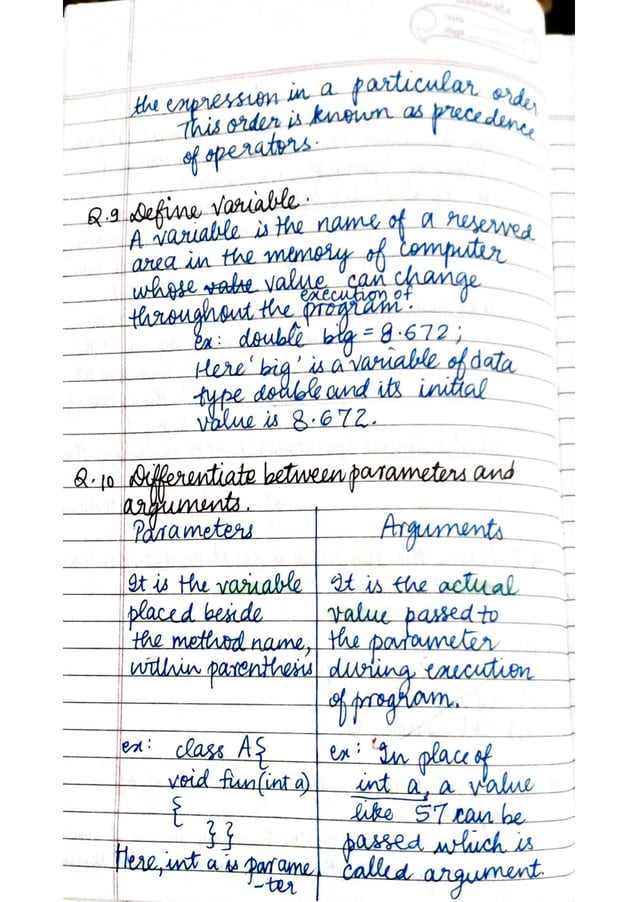 Date
Page
the expression in a particular order
This order is known as precedence
of operators.
Q.9 Define variable.
A variable is the name of a reserved
area in the memory of computer
whose value value can change
execution of
throughout the program.
Ex: double big = 8.672;
Here 'big' is a variable of data
type double and its initial
value is 8.672.
Q.10 Differentiate between parameters and
arguments.
Parameters
It is the variable
placed beside
the method name,
within parenthesis
ex: class A{
void fun(int a)
{
}}
Here, int a is parame
-ter
Arguments
It is the actual
value passed to
the parameter
during execution
of program.
ex: "In place of
int a, a value
like 57 can be
passed which is
called argument.